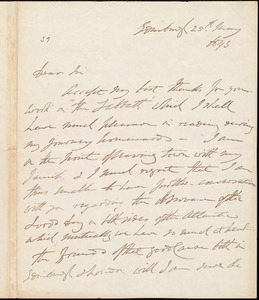 Edinburgh 25th May
1843
39
Dear Sir
Accept my best thanks for your
work on the "Sabbath" which I shall
have much pleasure in reading during
my journey homewards - I am
on the point of leaving town with my
family, & I much regret that I am
thus unable to have further conversation
with you regarding the observance of the
Lord's Day on both sides of the Atlantic
which mutually we have so much at heart
the grounds of that good cause both in
Edinburgh & London will I am sure be